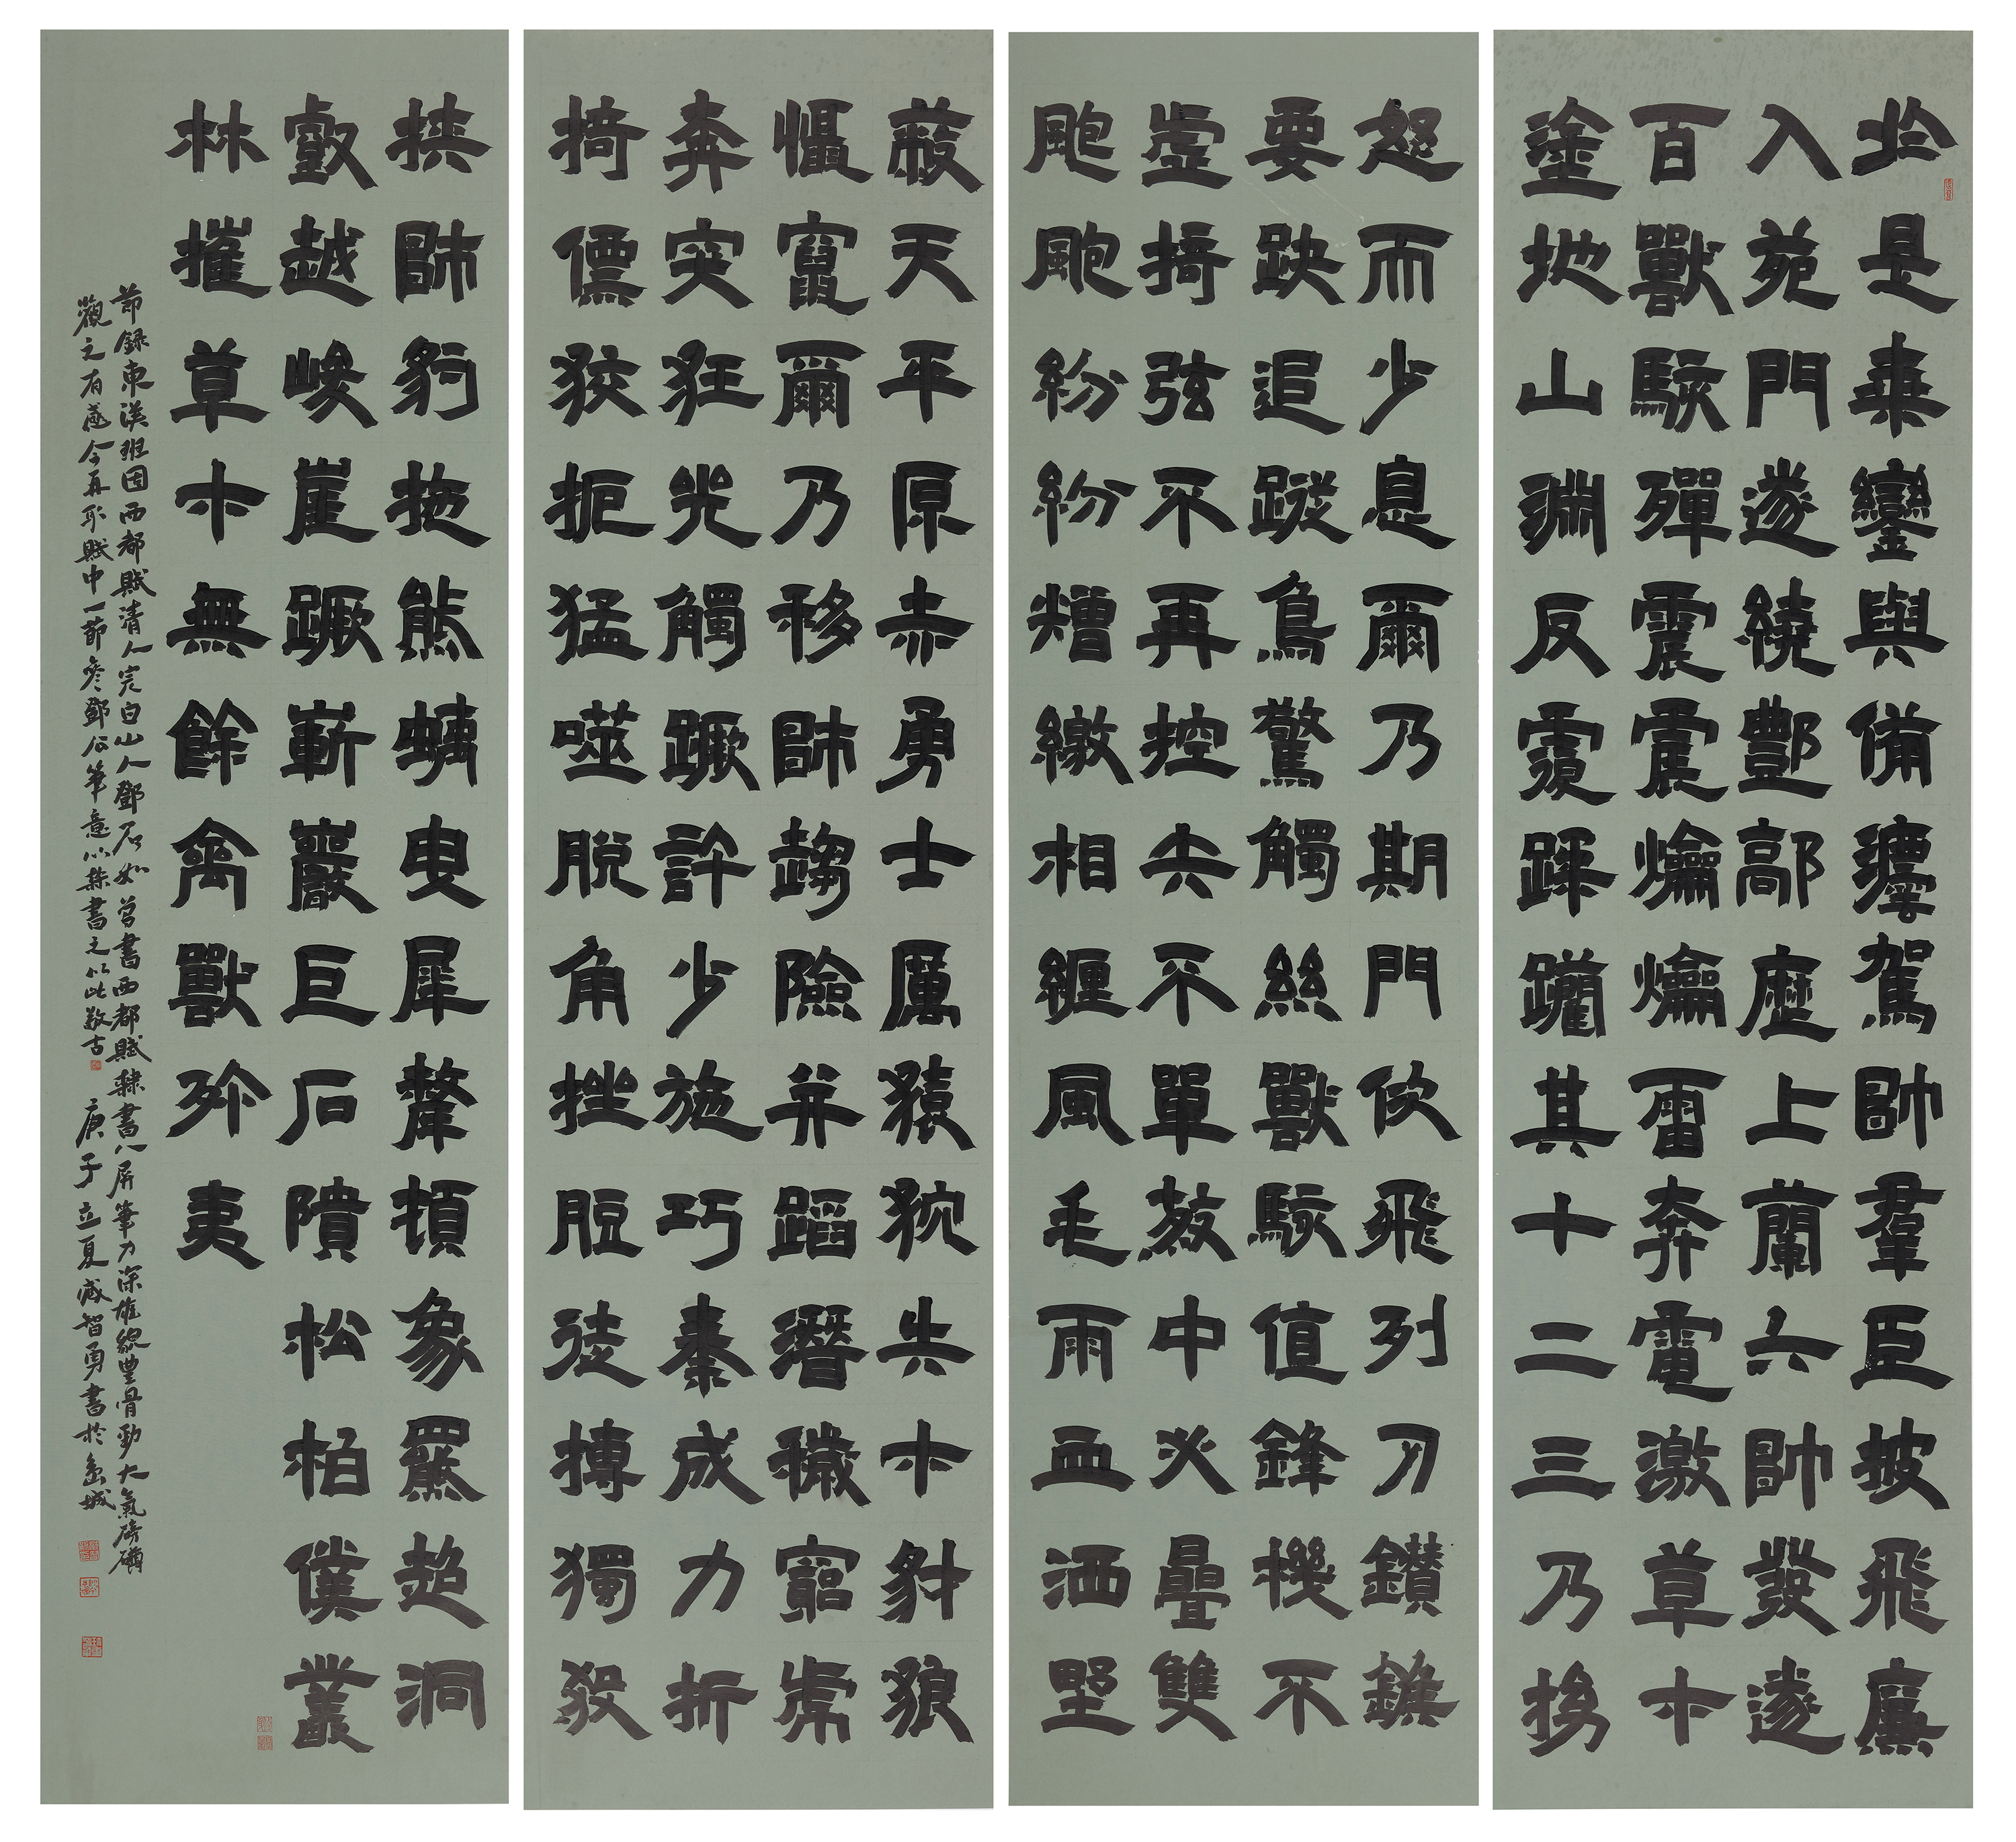 於是乘鑾輿備灋駕帥羣臣披飛廉
入苑門遂繞酆鄗歷上蘭六帥發遂
百獸駭殫震震爚爚雷奔電激草木
塗地山淵反覆蹂躪其十二三乃拗
怒而少息爾乃期門佽飛列刃鑽鍭
要趹追蹤鳥驚觸絲獸駭值鋒機不
虛掎弦不再控矢不單殺中必疊雙
颮颮紛紛矰繳相纏風毛雨血洒野
蔽天平原赤勇士厲猨狖失木豺狼
懾竄爾乃移師趨險并蹈潛穢窮虎
奔突狂兕觸蹶許少施巧秦成力折
掎僄狡扼猛噬脫角挫脰徒搏獨殺
挾師豹拖熊螭曳犀犛頓象羆超洞
壑越峻崖蹶嶄巖巨石隤松柏僕叢
林摧草木無餘禽獸殄夷
節錄東漢班固西都賦清人完白山人鄧石如曾書西都賦隸書八屏筆力深雄貌豐骨勁大氣磅礴
觀之有感今再取賦中一節參鄧公筆意以隸書之以此敬古 庚子立夏臧智勇書於島城